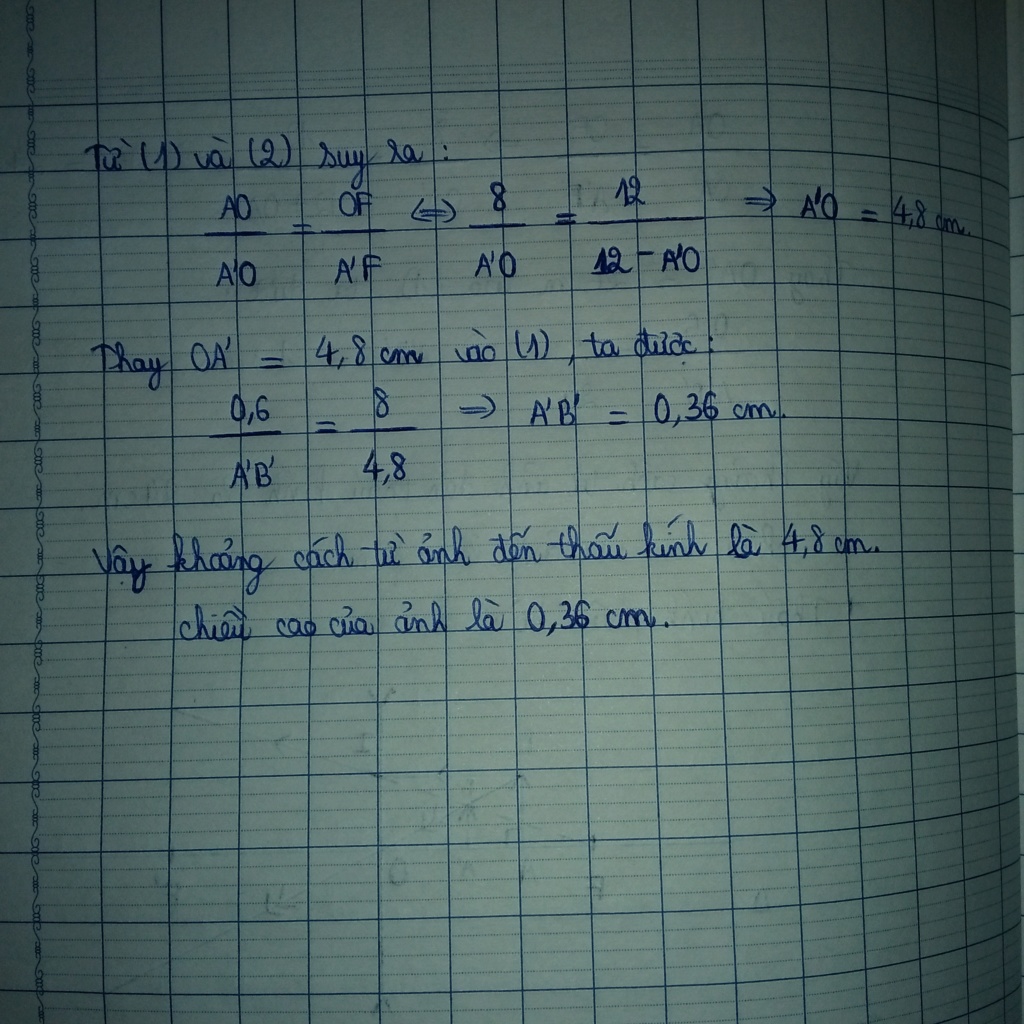 Từ (1) và (2) suy ra :
AO / A'O = OF / A'F ⇔ 8 / A'O = 12 / 12 - A'O ⇒ A'O = 4,8 cm.
Thay OA' = 4,8 cm vào (1), ta được:
0,6 / A'B' = 8 / 4,8 ⇒ A'B' = 0,36 cm.
Vậy khoảng cách từ ảnh đến thấu kính là 4,8 cm.
chiều cao của ảnh là 0,36 cm.